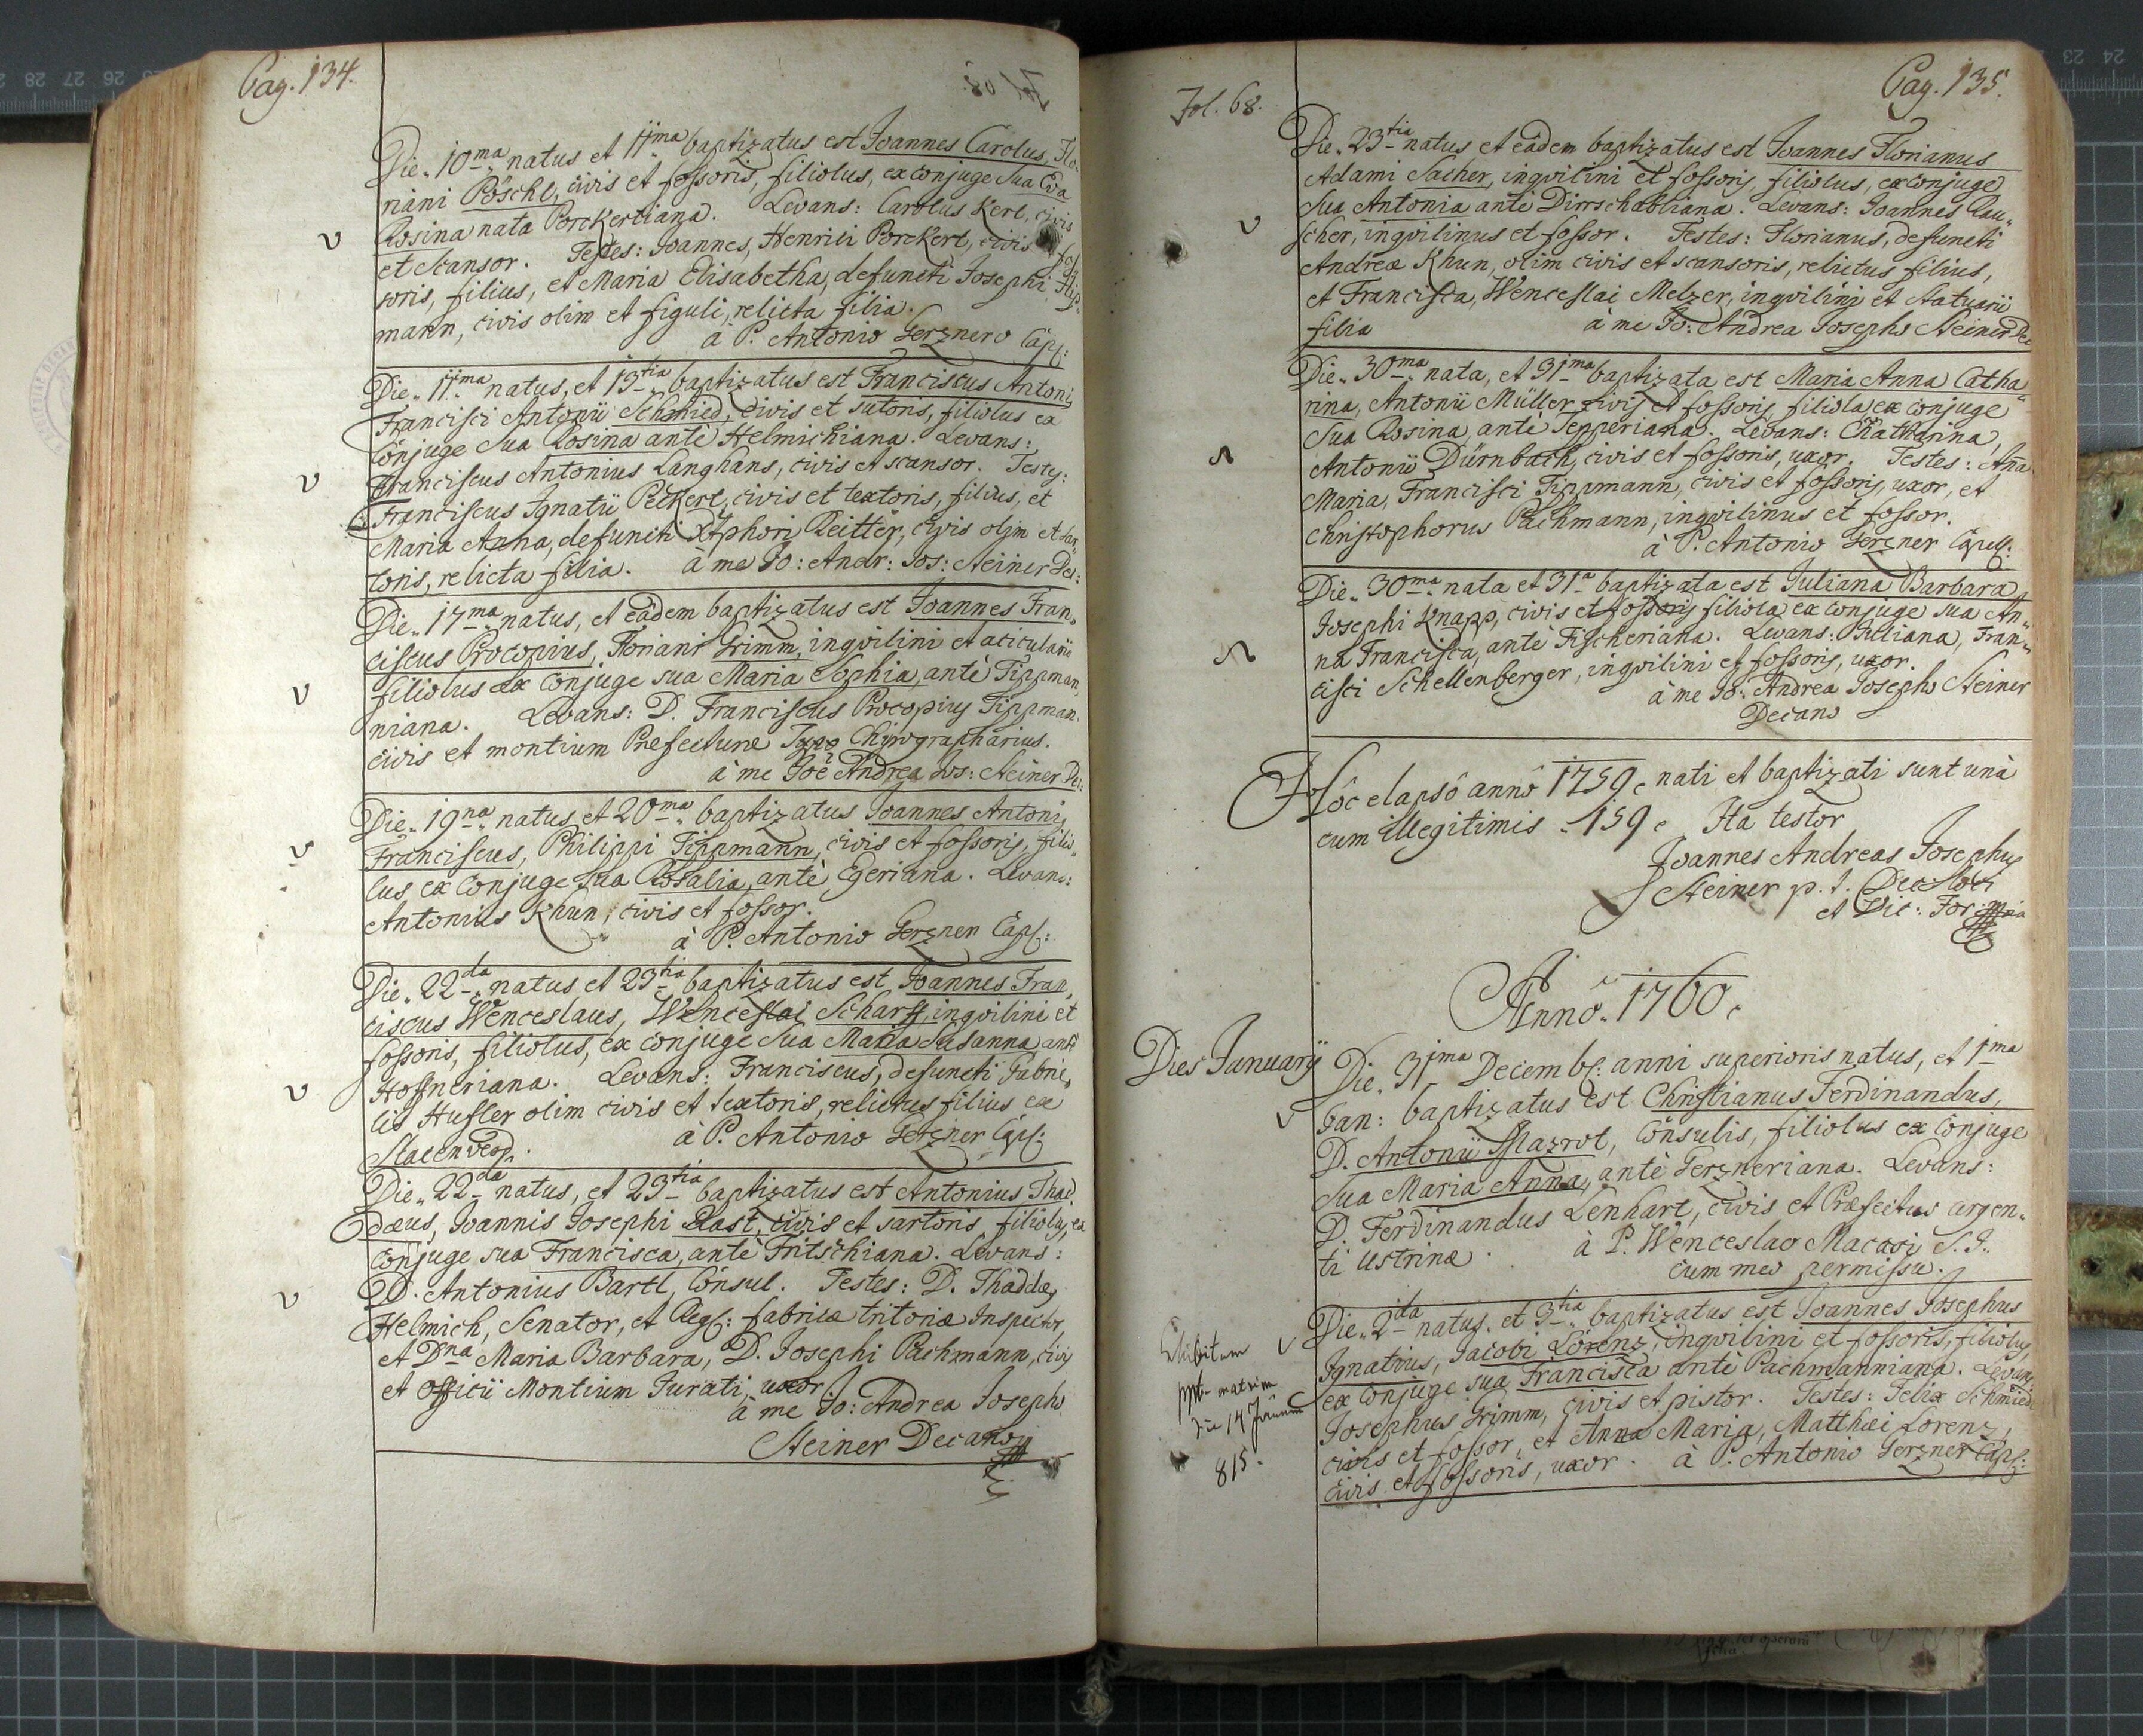 Pag. 134.
Die. 10ma natus et 11jma baptizatus est Joannes Carolus, Flo-
riani Pöschl, civis et fossoris, filiolus, ex conjuge sua Eva
Rosina nata Porckertiana. Levans: Carolus Kerl, civis
et scansor. Testes: Joannes, Henrici Porckert, civis et fos
soris, filius, et Maria Elisabetha, defuncti Josephi
mann, civis olim et figuli, relicta filia.
à P. Antonio Gerznero Cap:
Die. 11jma natus, et 13tia baptizatus est Franciscus Antoni,
Francisci Antonii Schmied, civis et sutoris, filiolus ex
Conjuge sua Rosina antè Helmichiana. Levans:
Franciscus Antonius Langhans, civis et scansor. Testes:
Franciscus Ignatii Peckert, civis et textoris, filius, et
Maria Anna, defuncti Xtphori Reitter, civis olim et sar-
toris, relicta filia. à me Jo: Andr: Jos: Steiner Dec:
Die. 17ma natus, et eâdem baptizatus est Joannes Fran,
ciscus Procopius, Floriani Grimm, inqvilini et acicularii
filiolus ex Conjuge sua Maria Sophia, antè Tippman
niana. Levans: D. Franciscus Procopius Tippman
civis et montium Præfecturæ Chirographarius.
à me Joê Andrea Jos: Steiner De:
Die. 19na natus, et 20ma baptizatus Joannes Antoni,
Franciscus, Philippi Tippmann, civis et fossoris, filio
lus ex Conjuge sua Rosalia, antè Egeriana. Levans:
Antonius Khun, civis et fossor.
à P. Antonio Gerzner Cap:
Die. 22da natus et 23tia baptizatus est Joannes Fran,
ciscus Wenceslaus, Wenceslai Scharff, inqvilini et
fossoris, filiolus, ex Conjuge sua Maria Susanna antè
Hoffneriana. Levans: Franciscus, defuncti Gabrie,
lis Hufler olim civis et textoris, relictus filius ex
à P. Antonio Gerzner Cap:
Die. 22da natus, et 23tia baptizatus est Antonius Thad,
dæus, Joannis Josephi Rast, civis et sartoris, filiolus, ex
Conjuge sua Francisca, antè Fritschiana. Levans:
D. Antonius Bartl, Consul. Testes: D. Thaddæ,
Helmich, Senator, et Reg: fabricæ tritoriæ Inspector,
et Dna Maria Barbara, D. Josephi Pachmann, civis
et Officii Montium Jurati, uxor
à me Jo: Andrea Josepho
Steiner Decano
Pag. 135.
Fol. 68.
Die. 23tia natus et eâdem baptizatus est Joannes Florianus
Adami Sacher, inqvilini et fossoris, filiolus, ex conjuge
sua Antonia antè Dirrschabliana. Levans: Joannes Rau-
scher, inqvilinus et fossor. Testes: Florianus, defuncti
Andreæ Khun, olim civis et scansoris, relictus filius,
et Francisca, Wenceslai Melzer, inqvilini et statuarii
filia à me Jo: Andrea Josepho Steiner De:
Die. 30ma nata, et 31ma baptizata est Maria Anna Catha-
rina, Antonii Müller civis et fossoris, filiola ex conjuge
sua Rosina, antè Pepperiana. Levans: Chatharina,
Antonii Dürnbach, civis et fossoris, uxor. Testes: Aña
Maria, Francisci Tippmann, civis et fossoris, uxor, et
Christophorus Pachmann, inqvilinus et fossor.
à P. Antonio Gerzner Capell:
Die. 30ma nata et 31a baptizata est Juliana Barbara,
Josephi Knapp, civis et fossoris filiola ex conjuge sua An-
na Francisca, antè Fischeriana. Levans: Juliana, Fran-
cisci Schellenberger, inqvilini et fossoris, uxor.
à me Jo: Andrea Josepho Steiner
Decano
Hôc elapsô annô 1759. nati et baptizati sunt unà
cum illegitimis . 159. Ita testor
Joannes Andreas Josephus
Steiner p. t. Dec:
et Vic: For:
Annô. 1760.
Dies Januarij
Die. 31jma Decemb: anni superioris natus, et 1ma
Jan: baptizatus est Christianus Ferdinandus,
D. Antonii Mazrot, Consulis, filiolus ex Conjuge
sua Maria Anna, antè Gerzneriana. Levans:
D. Ferdinandus Lenhart, civis et Præfectus argen-
ti Ustrinæ. à P. Wenceslao Macasi S. J.
cum meo permissu.
Die. 2da natus, et 3tia baptizatus est Joannes Josephus
Ignatius, Jacobi Lorenz, inqvilini et fossoris, filiolus,
ex Conjuge sua Francisca antè Pachmanniana. Levans
Josephus Grimm, civis et pistor. Testes: Felix Schmied
civis et fossor, et Anna Maria, Matthæi Lorenz,
civis et fossoris, uxor. à P. Antonio Gerzner Cap:
matrim
die 14 Januar
815.